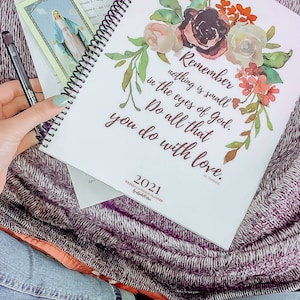 Remember
nothing is small
in the eyes of God.
Do all that
you do with love.
2021